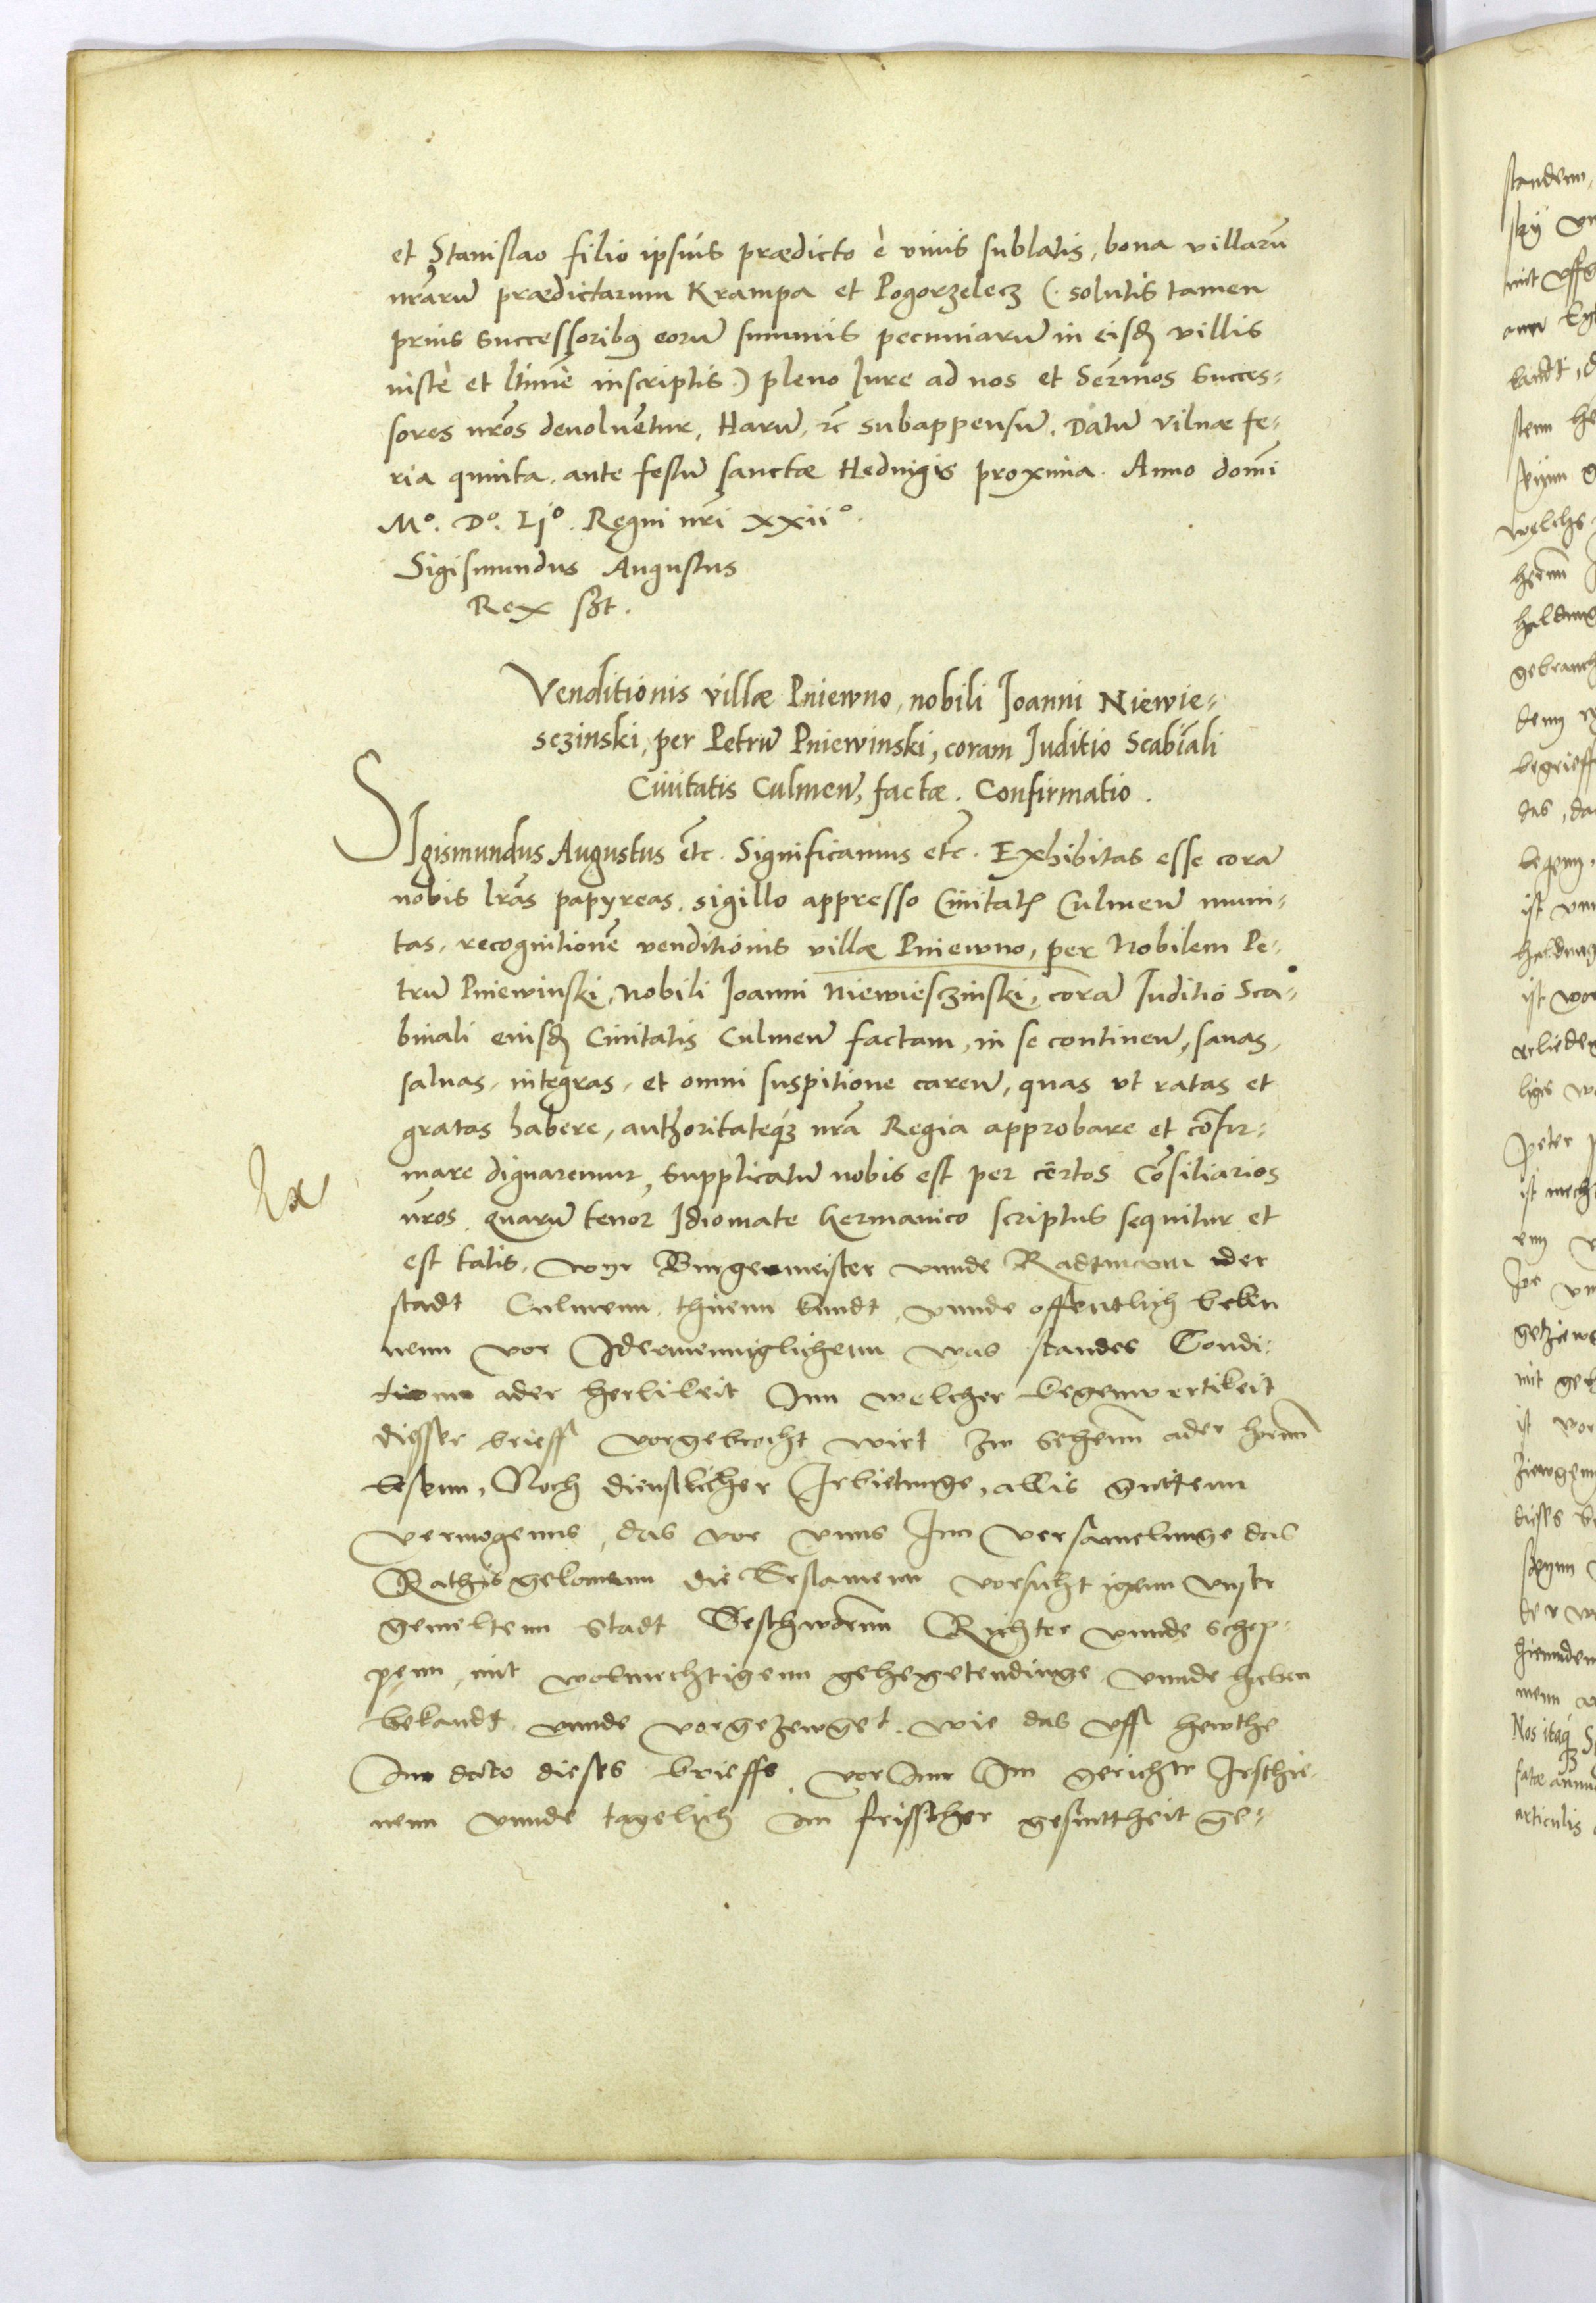 et Stanislao filio ipsius prædicto è viuis sublatis, bona villarũ
nrãrũ prædictarum Krampa et Pogorzelecz (. solutis tamen
prius Successoribꝰ eorũ summis pecuniarũ in eisdꝫ villis
iustè et ltimè inscriptis.) pleno Iure ad nos et Serm̃os Succes=
sores nrõs deuoluẽtur, Harũ, ꝛc̃ subappensũ, Datũ Vilnæ fe=
ria quinta, ante festũ sanctæ Heduigis proxima. Anno domĩ
Mº. Dº. Ljº. Regni nrĩ xxiiº.
Sigismundus Augustus
Rex sßt.
Venditionis villæ Pniewno, nobili Ioanni Niewie=
sczinski, per Petrũ Pniewinski, coram Iuditio Scabĩali
Ciuitatis Culmeñ, factæ. Confirmatio.
SIgismundus Augustus etc̃. Significamus etc̃. Exhibitas esse corã
nobis lrãs papyreas, sigillo appresso Ciuitatꝭ Culmeñ muni=
tas, recognitionẽ venditionis villæ Pniewno, per Nobilem Pe=
trũ Pniewinski, Nobili Ioanni Niewiesczinski, corã Iuditio Sca=
binali eiusdꝫ Ciuitatis Culmeñ factam, in se contineñ, sanas,
saluas, integras, et omni suspitione careñ, quas vt ratas et
gratas habere, authoritateqꝫ nrã Regia approbare et cõfir=
mare dignaremur, Supplicatũ nobis est per certos Cõsiliarios
nrõs, quarũ tenor Idiomate Germanico scriptus sequitur et
est talis, Wyr Burgermeister vnnde Radtmann der
stadt Culmenn, thuenn kundt, vnnde offentlich beken
nenn vor Idermenniglichenn was standes Condi=
tionn ader herlikeit Inn welcher kegenwertikeit
diesser brieff vorgebrocht wirt Zw sehenn ader horenn
lesenn, Noch dienstlicher Irbietunge, allis guttenn
vermogenns, das vor vnns Inn versamelunge das
Rathis gekomenn die Erslamenn vorsichtigenn vnser
gemeltenn Stadt Geschworenn Richter vnnde schep=
penn, mit wolmechtigenn gehegetendinge vnnde haben
bekandt, vnnde vorgezewget, wie das vff hewthe
Inn dato dieses brieffs, vor Inn Im gerichte Irschie=
nenn vnnde tzegelich in frisscher gesuntheit ge=
Ex